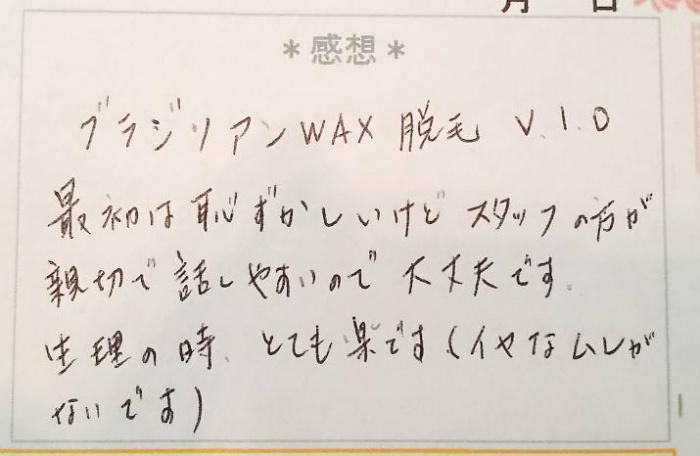 月 日
*感想*
ブラジリアンWAX 脱毛 V.I.O
最初は恥ずかしいけど スタッフの方が
親切で話しやすいので大丈夫です。
生理の時、とても楽です(イヤなムレが
ないです)